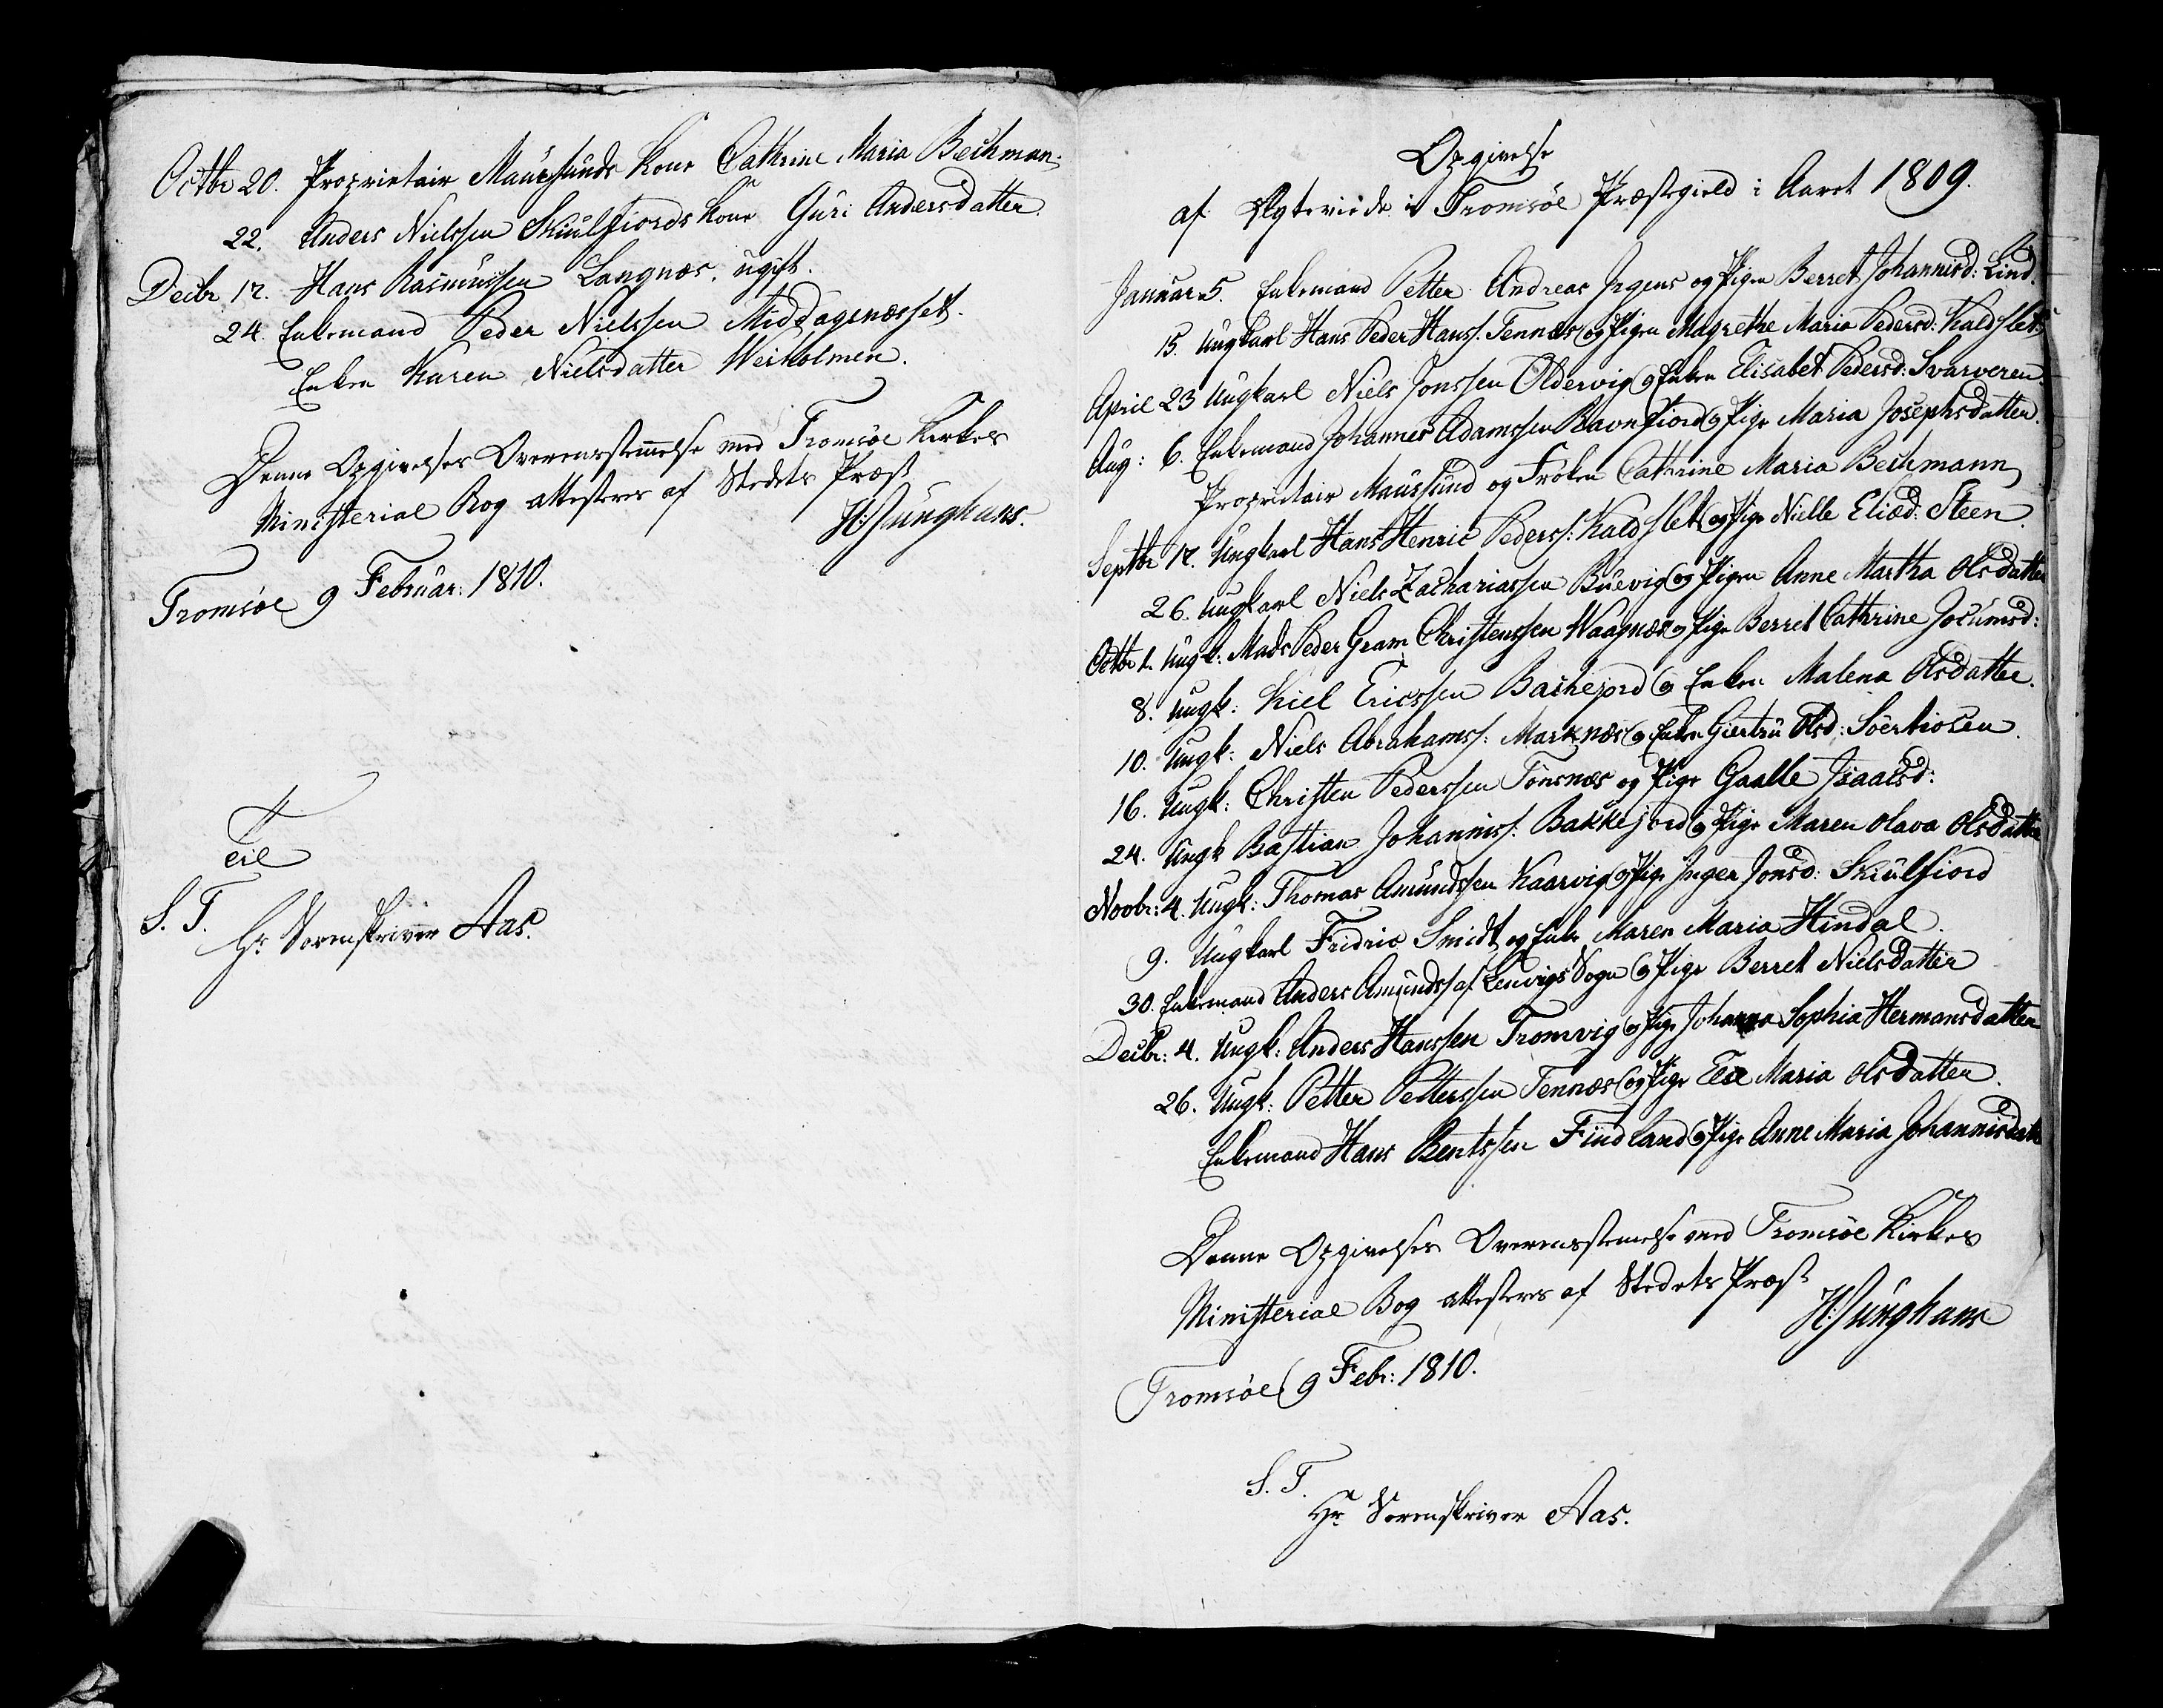 Octbr 20. Proprietair Maursunds Kone Cathrine Maria Bechman.
22. Anders Nielssen Skiulfiords Kone Guri Andersdatter.
Decbr 12. Hans Rasmussen Langnæs. ugift.
24. Enkemand Peder Nielssen Middagsnæsset.
Enken Karen Nielsdatter Weiholmen.
Denne Opgivelses Overensstemmelse med Tromsöe Kirkes
Ministerial Bog attesteres af Stedets Præst
H: Junghans.
Tromsöe 9 Februar: 1810.
Til
S. T.
Hr Sorenskriver Aas.
Opgivelse
af Ægteviede i Tromsöe Præstegield i Aaret 1809.
Januar 5. Enkemand Petter Andreas Irgens og Pigen Berret Johannisd: Lind.
15. Ungkarl Hans Peder Hanss. Tennæs og Pigen Magrethe Maria Pedersd: Kaldslet.
April 23 Ungkarl Niels Jonssen Oldervig og Enken Elisabet Pedersd: Svarveren.
Aug: 6. Enkemand Johannes Adamssen Ravnfiord og Pige Maria Josephsdatter.
Proprietair Maursund og Fröken Cathrine Maria Bechmann
Septbr 17. Ungkarl Hans Henric Pederss: Kaldslet og Pige Nille Eliæd: Steen.
26. Ungkarl Niels Zachariassen Buevig og Pigen Anne Martha Olsdatter
Octbr 1. Ungk: Mads Peder Gram Christenssen Waagnæs og Pige Berret Cathrine Jocumsd:
8. Ungk: Kiel Ericssen Backejord og Enken Malena Olsdatter.
10. Ungk: Niels Abrahamss: Marknæs og Enken Giertru Olsd: Soertiosen.
16. Ungk: Christen Pederssen Tönsnæs og Pige Gaalle Isaacsd:
24. Ungk Bastian Johanniss: Bakkejord og Pige Maren Olava Olsdatter
Novbr: 4. Ungk: Thomas Amundssen Kaarvig og Pige Inger Jonsd: Skiulfiord
9. Ungkarl Fridric Smidt og Enke Maren Maria Hindal.
30. Enkemand Anders Amundss af Lenvigs Sogn og Pige Berret Nielsdatter
Decbr: 4. Ungk: Anders Hanssen Tromvig og Pige Johanna Sophia Hermansdatter
26. Ungk: Petter Petterssen Tennæs og Pige Else Maria Olsdatter.
Enkemand Hans Bentssen Findland og Pige Anne Maria Johannisdatter
Denne Opgivelses Overensstemelse med Tromsöe Kirkes
Ministerial Bog attesteres af Stedets Præst
H: Junghans
Tromsöe 9 Febr: 1810.
S. T.
Hr Sorenskriver Aas.